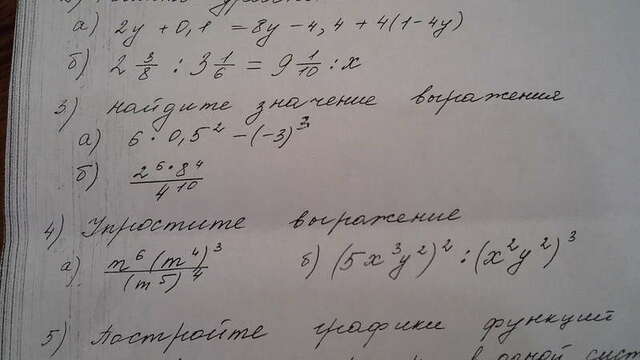 а) 2y + 0,1 = 8y - 4,4 + 4(1-4y)
б) 2 3/8 : 3 1/6 = 9 1/10 : x
3) Найдите значение выражения
а) 6 · 0,5² - (-3)³
б) 2⁶ · 8⁴ / 4¹⁰
4) Упростите выражение
а) m⁶ (m⁴)³ / (m⁵)⁴ б) (5x³y²)² : (x²y²)³
5) Постройте графики функций
в одной сист